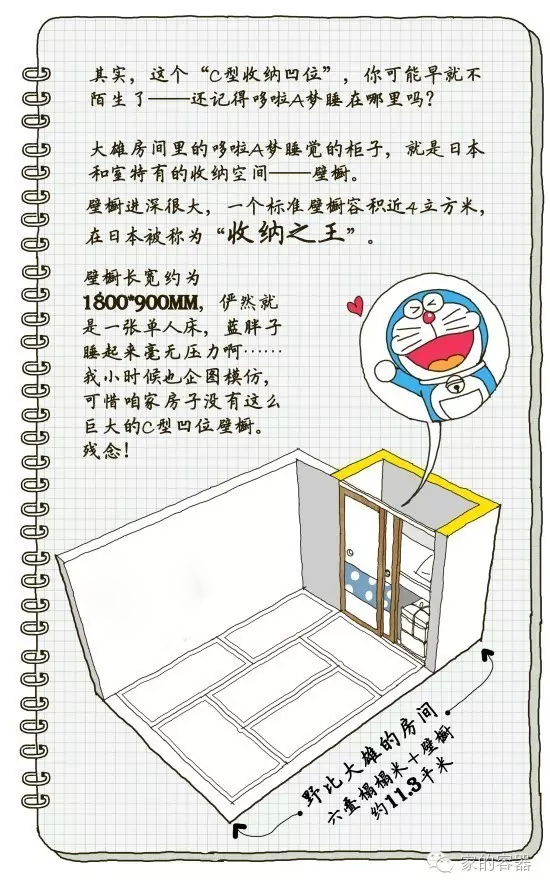 其实，这个“C型收纳凹位”，你可能早就不
陌生了——还记得哆啦A梦睡在哪里吗？
大雄房间里的哆啦A梦睡觉的柜子，就是日本
和室特有的收纳空间——壁橱。
壁橱进深很大，一个标准壁橱容积近4立方米，
在日本被称为“收纳之王”。
壁橱长宽约为
1800*900MM，俨然就
是一张单人床，蓝胖子
睡起来毫无压力啊……
我小时候也企图模仿，
可惜咱家房子没有这么
巨大的C型凹位壁橱。
残念！
野比大雄的房间
六叠榻榻米＋壁橱
约11.3平米
家的容器